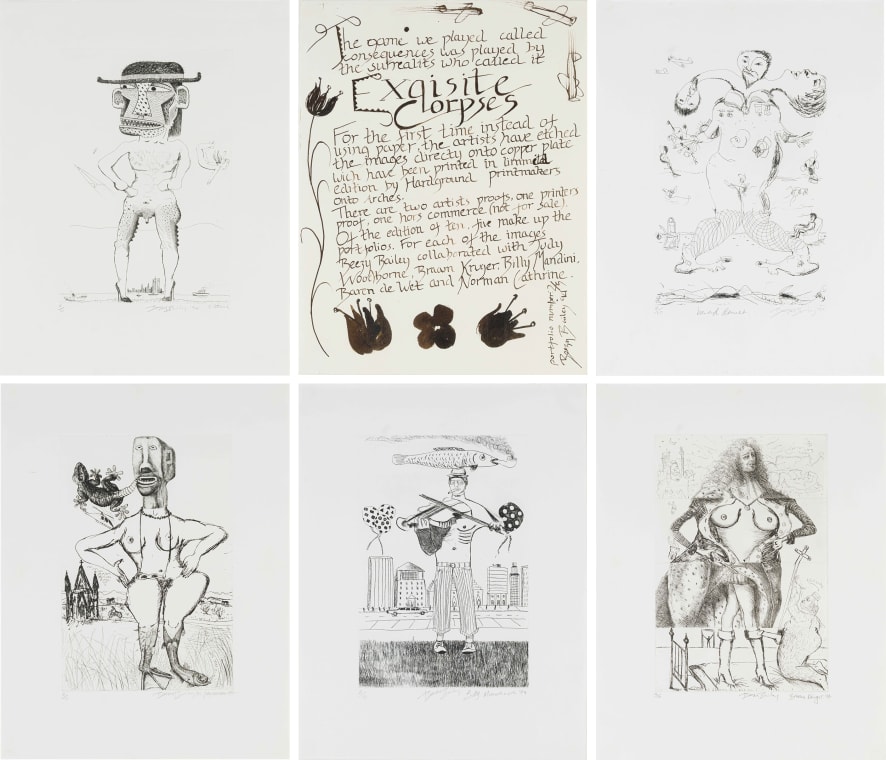 The game we played called
consequences was played by
the surrealits who called it
Exqisite
Corpses
For the first time instead of
using paper, the artists have etched
the images directly onto copper plate
wich have been printed in limmited
edition by Hardground printmakers
onto Arches.
There are two artists proofs, one printers
proof, one hors commerce (not for sale).
Of the edition of ten, five make up the
portfolios. For each of the images
Beezy Bailey collaborated with Judy
Woolborne, Braam Kruger, Billy Mandini,
Baren de Wet and Norman Catherine.
portfolio number
Beezy Bailey